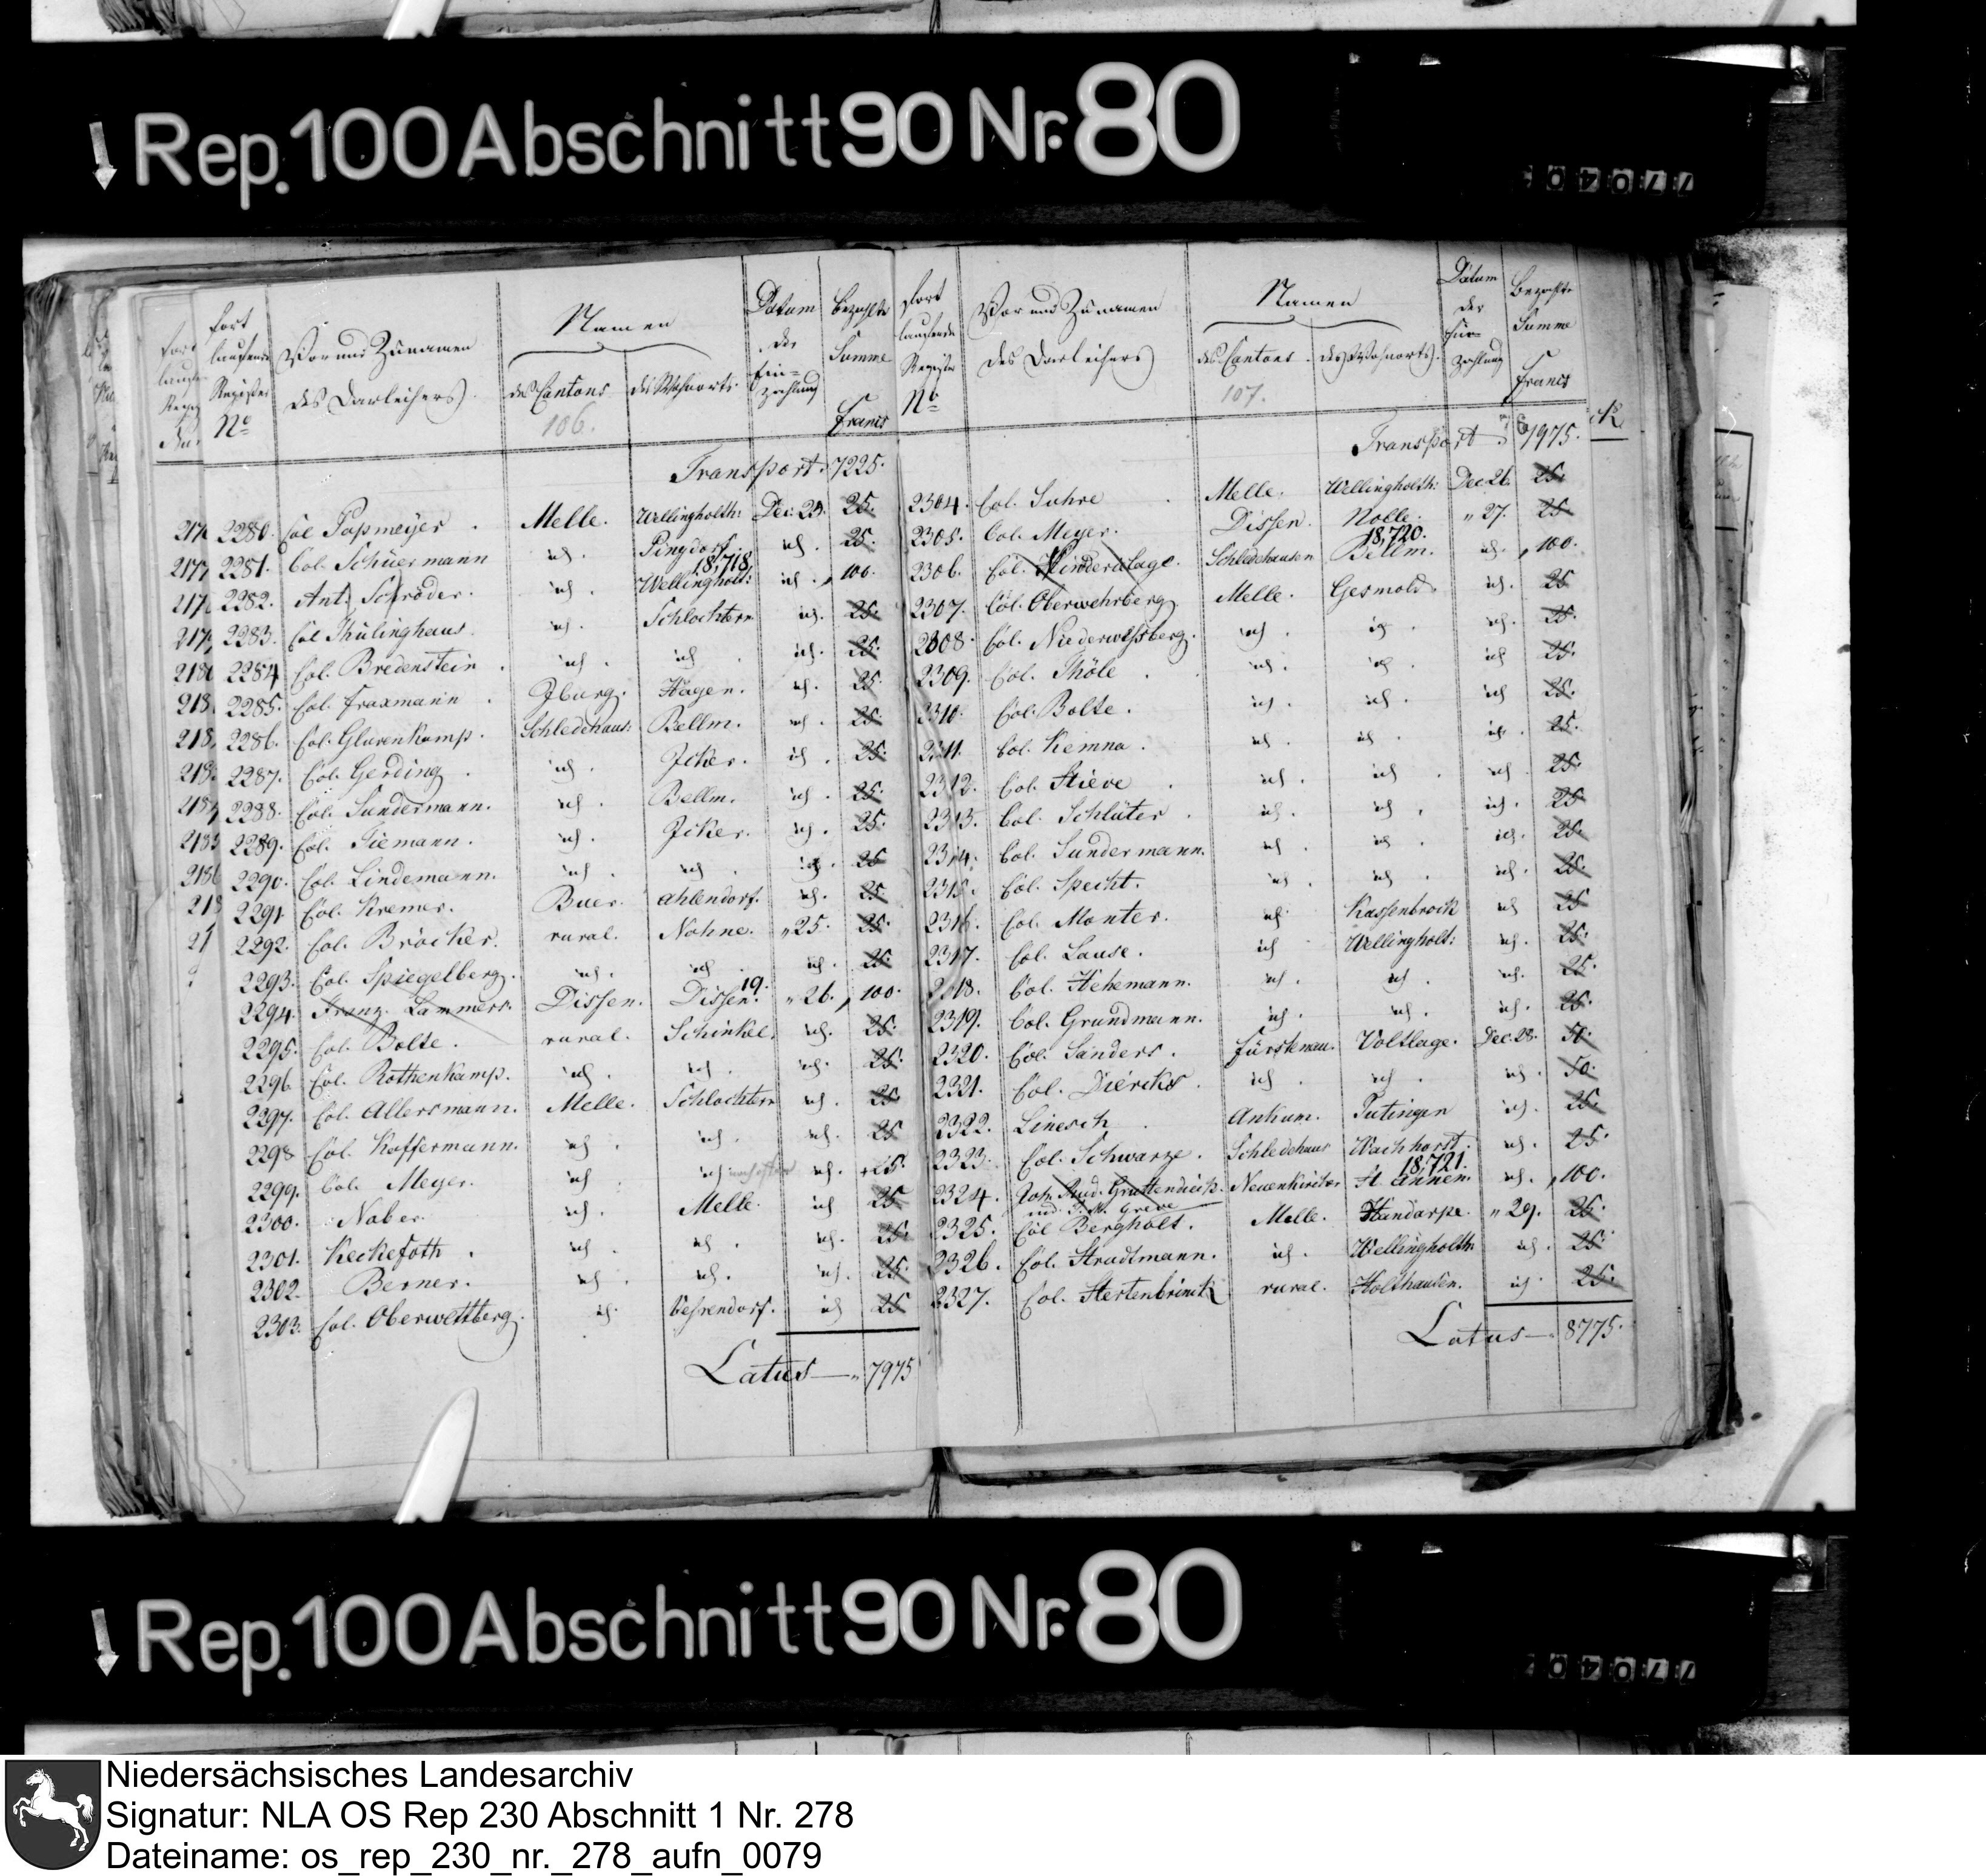 Rep. 100 Abschnitt 90 Nr. 80
Fort laufende Register No
Vor und Zunamen des Darleihers
Namen
des Cantons
des Wohnorts
106.
Datum der Einzahlung
Bezahlte Summe
Francs
Transport 7225.
2280. Col Papmeÿer. Melle. Wellingholth: Dec: 24. 25.
2281. Col. Schüermann id. Pingdorf id. 25.
18,718
2282. Ant: Schröder. id. Wellinghol: id. 100.
2283. Col Thülinghaus. id. Schlochtern id. 25.
2284 Col. Bredenstein. id. id. id. 25.
2285. Col. Fraxmann. Iburg. Hagen. id. 25
2286. Col. Glarenkamp. Schledehaus: Bellm. id. 25
2287. Col. Gerding. id. Jcker. id. 25.
2288. Col. Sundermann. id. Bellm. id. 25.
2289. Col. Tiemann. id. Jcker. id. 25.
2290. Col. Lindemann. id. id. id. 25
2291 Col. Kremer. Buer. Ahlendorf. id. 25.
2292. Col. Bröcker. rural. Nahne. " 25. 25.
2293. Col. Spiegelberg. id. id. id. 25.
19.
2294. Franz. Lammers. Dissen. Dissen. " 26. 100.
2295. Col. Bolte. rural. Schinkel. id. 25.
2296. Col. Rothenkamp. id. id. id. 25.
2297. Col. Allersmann. Melle. Schlochtern id. 25
2298 Col. Koffermann. id. id. id. 25
2299. Col. Meyer. id. id id. 25.
2300. Naber. id. Melle. id 25
2301. Keckefoth. id. id. id. 25.
2302. Berner. id. id. id. 25.
2303. Col. Oberwettberg. id. Gesrendorf. id 25
Latus — " 7975
Fort laufende Register No
Vor und Zunamen des Darleihers
Namen
des Cantons
des Wohnorts.
107.
Datum der Einzahlung
Bezahlte Summe
Francs
Transport 7975.
2304. Col. Suhre Melle. Wellingholth: Dec 26. 25.
2305. Col. Meyer. Dissen. Nolle. " 27. 25.
18,720.
2306. Col. Hinderulage. Schledehausen Bellm. id. 100.
2307. Col. Oberwehrberg. Melle. Gesmold. id. 25
2308. Col. Niederwehrberg. id. id. id. 25.
2309. Col. Thöle. id. id. id 25.
2310. Col. Bolte. id. id. id 25.
2311. Col. Kemna. id. id. id. 25.
2312. Col. Stieve. id. id. id. 25.
2313. Col. Schlüter. id. id. id. 25
2314. Col. Sundermann. id. id. id. 25.
2315. Col. Specht. id. id. id. 25.
2316. Col. Monter. id. Kassenbrock id 25
2317. Col. Lause. id Wellingholt: id. 25.
2318. Col. Hehemann. id. id id. 25.
2319. Col. Grundmann. id. id. id. 25.
2320. Col. Sanders. Fürstenau. Voltlage. Dec. 28. 50.
2321. Col. Diercks. id. id. id. 50.
2322. Linesch. Ankum. Tutingen id. 25.
2323. Col. Schwarze. Schledehaus Wachhorst. id. 25.
18,721.
2324. Joh. Rud. Grustendieck. Neuenkirchen St Annen. id. 100.
und F. M. Greve
2325. Col Bergholt. Melle. Handarpe. " 29. 25.
2326. Col. Stradtmann. id. Wellingholth id. 25.
2327. Col. Hertenbrinck rural. Holthausen. id. 25.
Latus — 8775.
Rep. 100 Abschnitt 90 Nr. 80
Niedersächsisches Landesarchiv
Signatur: NLA OS Rep 230 Abschnitt 1 Nr. 278
Dateiname: os_rep_230_nr._278_aufn_0079